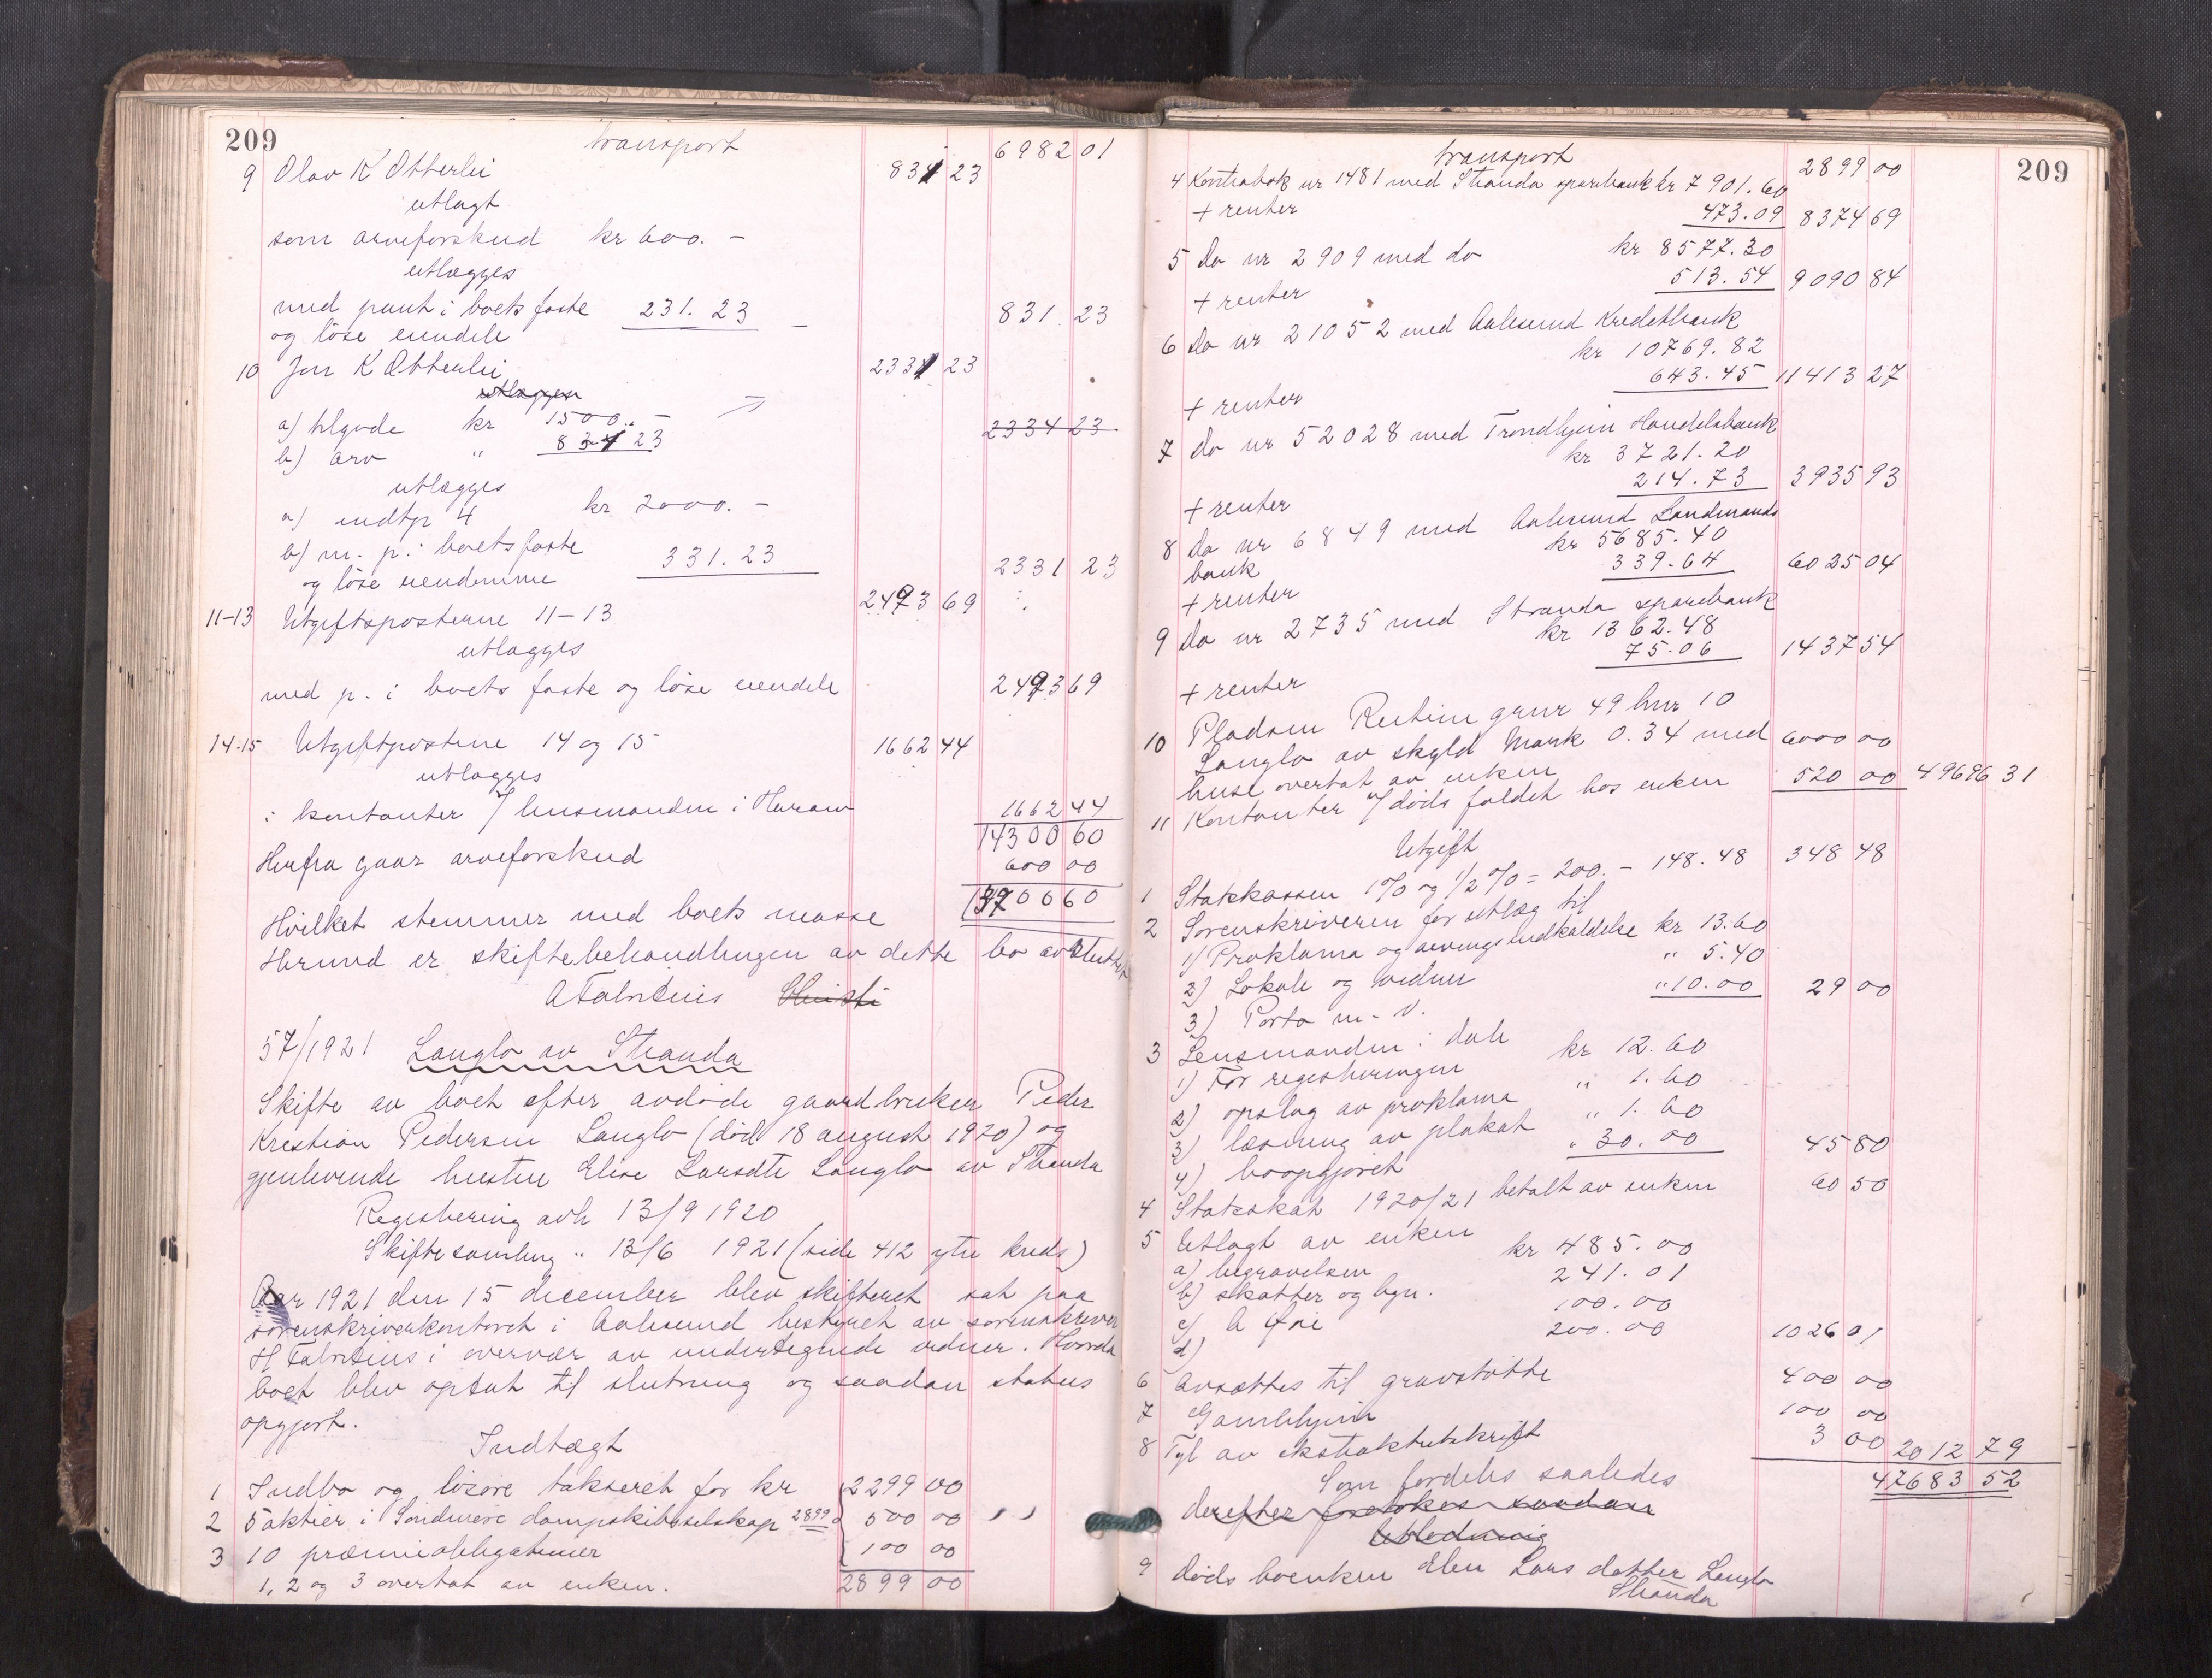 209 transport 6982 01
9 Olav K Otterlei 831 23
utlagt
som arveforskud kr 600. -
utlægges
med pant i boets faste 231. 23 - 831 23
og løse eiendele
10 Jon K Otterlei 2331 23
utlægges
a) tilgode kr 1500. -
b) arv " 831 23 2334 23
utlægges
a) indtp 4 kr 2000. -
b) m. p. i boets faste 331. 23 2331 23
og løse eiendomme
11-13 Utgiftsposterne 11-13 2493 69
utlægges
med p. i boets faste og løse eiendele 2493 69
14-15 Utgiftpostene 14 og 15 1662 44
utlægges
i kontanter / lensmanden i Haram 1662 44
14300 60
Herfra gaar arveforskud 600 00
Hvilket stemmer med boets masse 13700 60
Hermed er skiftebehandlingen av dette bo avsluttet
Fabritius
57/1921 Langlo av Stranda
Skifte av boet efter avdøde gaardbruker Peder
Kristian Pedersen Langlo (død 18 august 1920) og
gjenlevende hustru Elise Larsdtr Langlo av Stranda
Registrering avh 13/9 1920
Skiftesamling " 13/6 1921 (side 412 ytre kreds)
Aar 1921 den 15 december blev skifteret sat paa
sorenskriverkontoret i Aalesund bestyret av sorenskriver
H Fabritius i overvær av undertegnede vidner. Hvorda
boet blev optat til slutning og saadan status
opgjort.
Indtægt
1 Indbo og løsøre taksert for kr 2299 00
2 5 aktier i Søndmøre dampskibsselskap 2899 500 00
3 10 præmieobligationer 100 00
1, 2 og 3 overtat av enken. 2899 00
transport 2899 00 209
4 Kontrabok nr 1481 med Stranda sparebank kr 7901. 60
+ renter 473. 09 8374 69
5 Do nr 2909 med do kr 8577. 30
+ renter 513. 54 9090 84
6 Do nr 21052 med Aalesund Kreditbank
kr 10769. 82
+ renter 643. 45 11413 27
7 Do nr 52028 med Trondhjem Handelsbank
kr 3721. 20
+ renter 214. 73 3935 93
8 Do nr 6849 med Aalesund Landmands
bank kr 5685. 40
+ renter 339. 64 6025 04
9 Do nr 2735 med Stranda sparebank
kr 1362. 48
+ renter 75. 06 1437 54
10 Pladsen gnr 49 bnr 10
Langlo av skyld Mark 0. 34 med
huse overtat av enken 6000 00
11 Kontanter v/ dødsfaldet hos enken 520 00 49696 31
Utgift
1 Statskassen 1 % og 1/2 % = 200. - 148. 48 348 48
2 Sorenskriveren for utlæg til
1) Proklama og arvingsindkaldelse kr 13. 60
2) Lokale og vidner " 5. 40
3) Porto m. v. " 10. 00 29 00
3 Lensmanden i Dale
1) For registreringen kr 12. 60
2) opslag av proklama " 1. 60
3) læsning av plakat " 1. 60
4) boopgjøret " 30. 00 45 80
4 Statsskat 1920/21 betalt av enken 60 50
5 Utlagt av enken
a) begravelsen kr 485. 00
b) skatter og bgn. 241. 01
c) A Øie 100. 00
d) 200. 00 1026 01
6 Avsættes til gravstøtte 400 00
7 Gamlehjem 100 00
8 Tgl av ekstraktutskrift 3 00 2012 79
Som fordeles saaledes 47683 52
derefter foretokes saadan
Utlodning
9 Døds boenken Elen Lars datter Langlo
Stranda